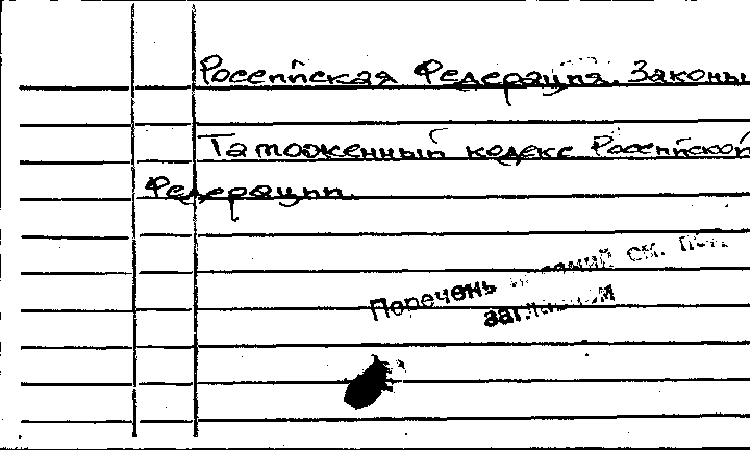 Российская Федерация. Законы
Таможенный кодекс Российской
Федерации.
Перечень изданий см. под
заглавием